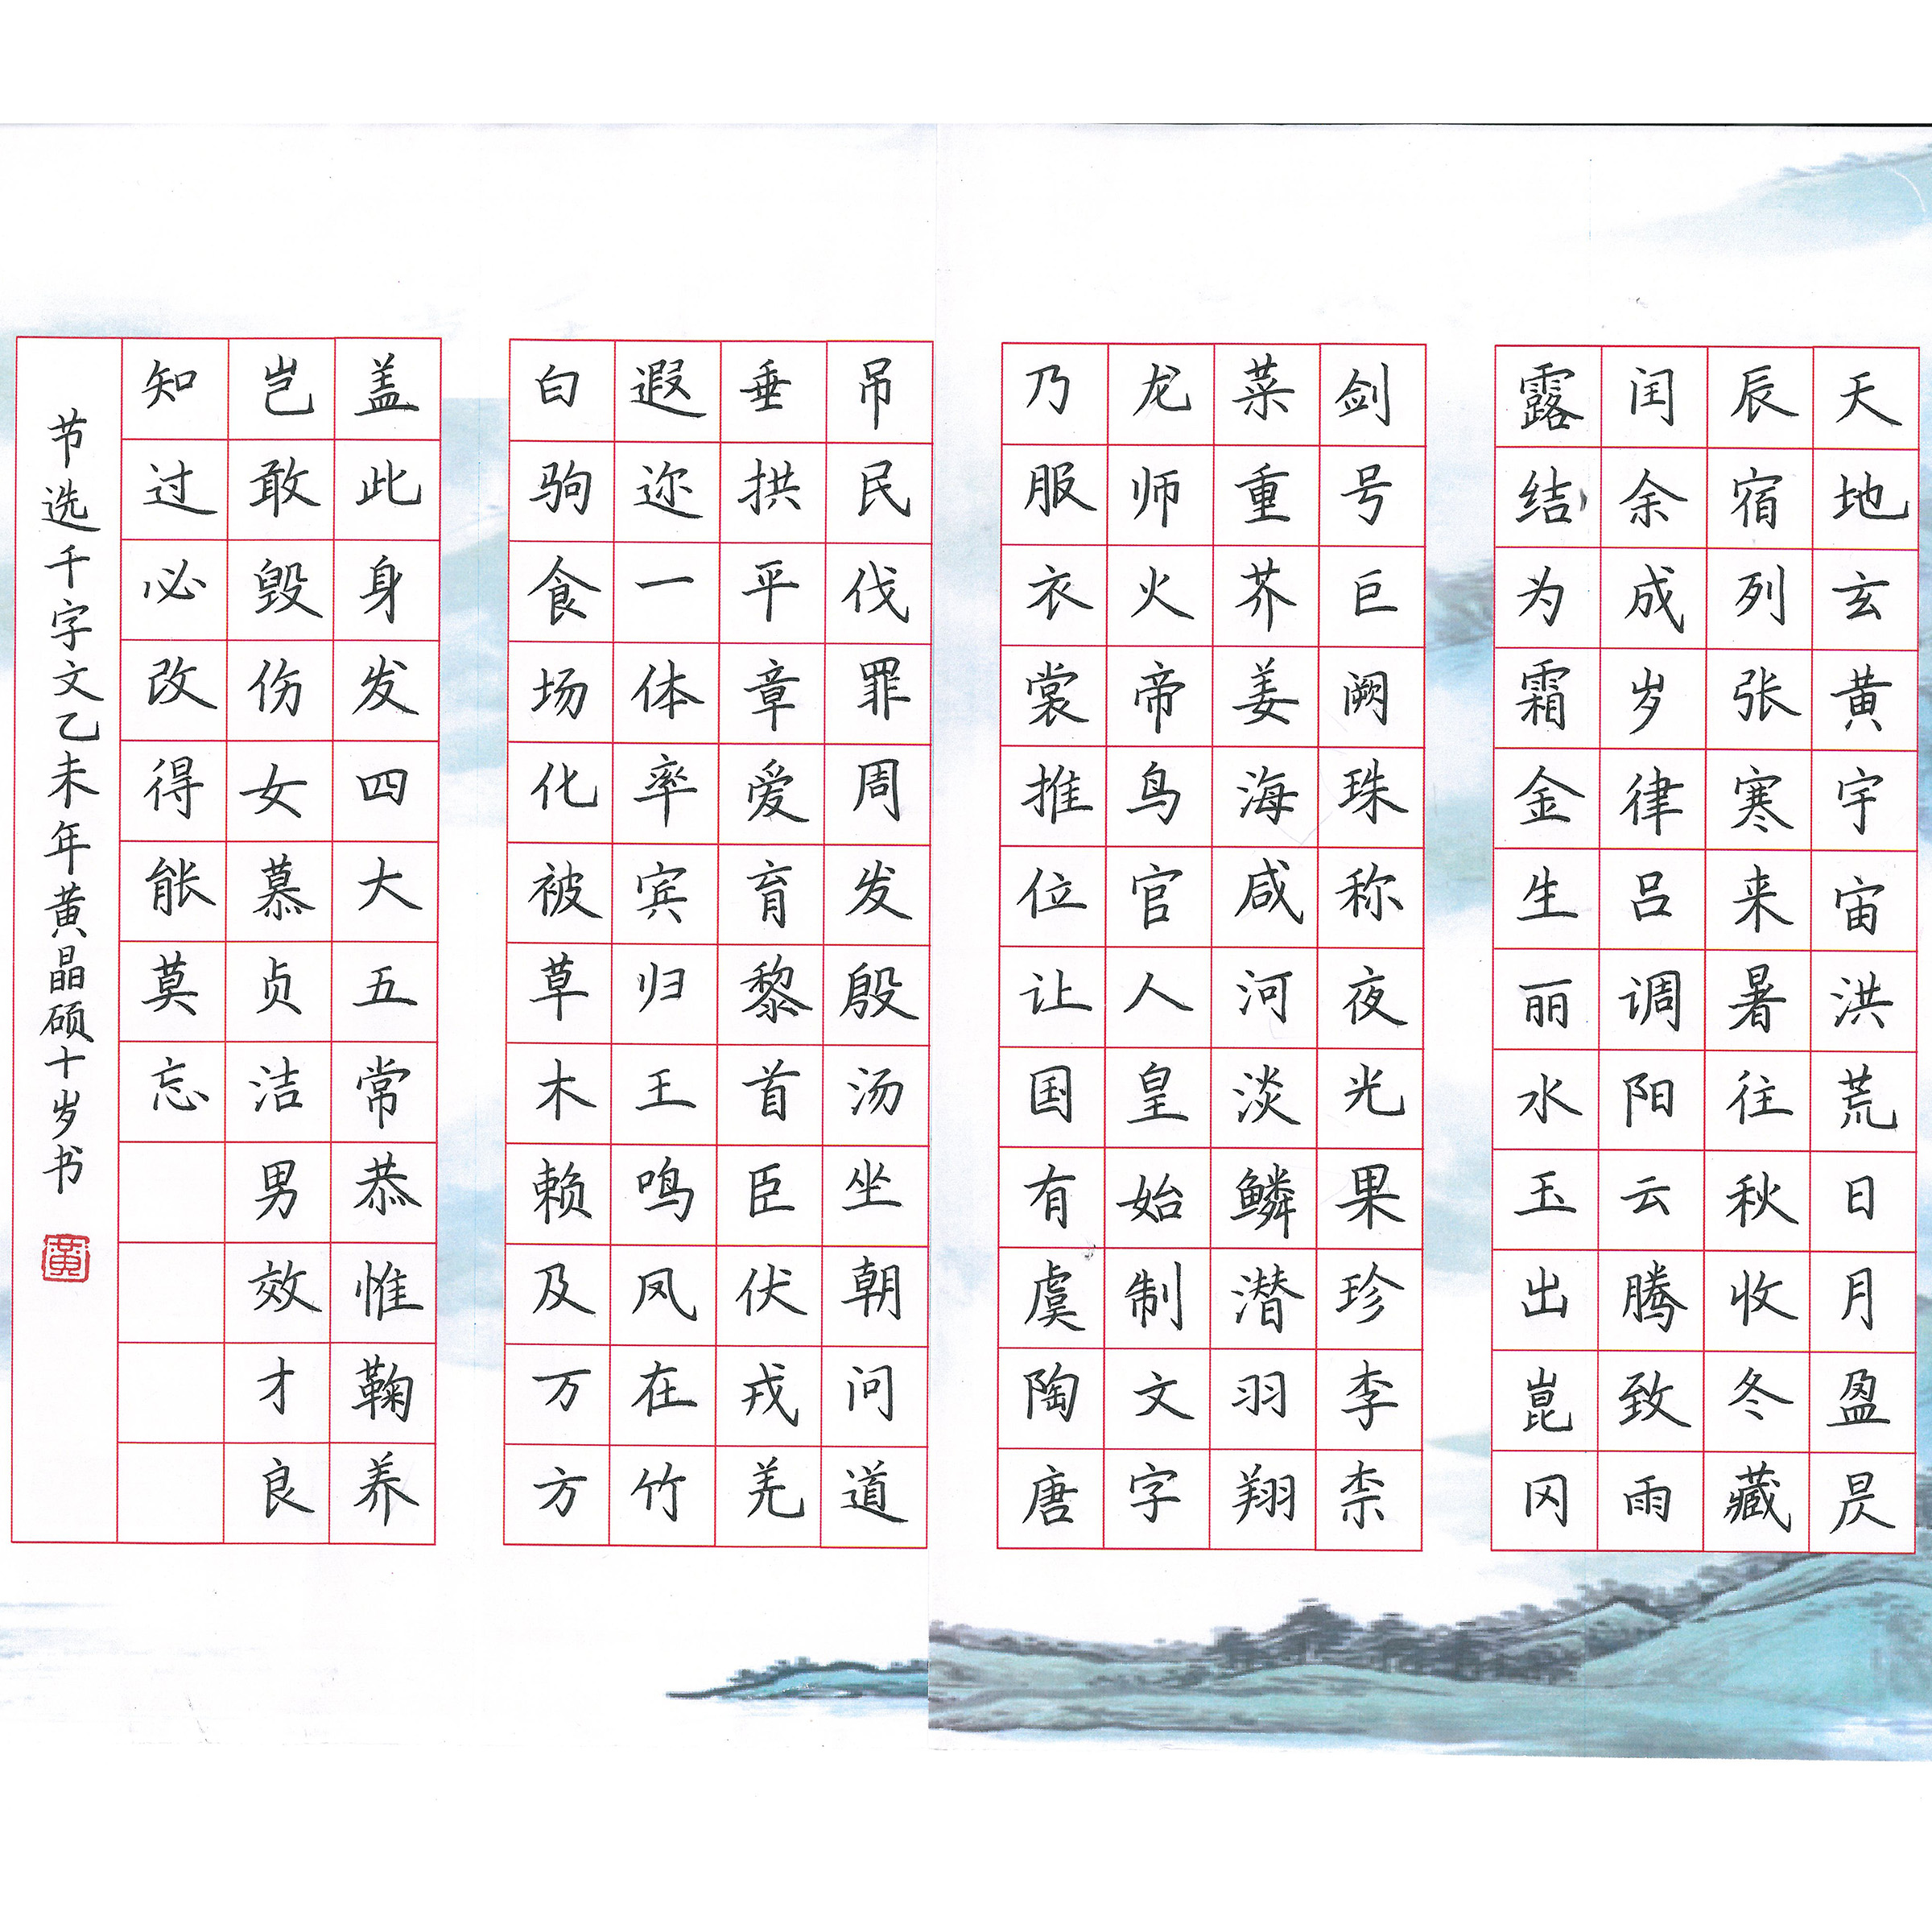 天地玄黄宇宙洪荒日月盈昃
辰宿列张寒来暑往秋收冬藏
闰余成岁律吕调阳云腾致雨
露结为霜金生丽水玉出崑冈
剑号巨阙珠称夜光果珍李柰
菜重芥姜海咸河淡鳞潜羽翔
龙师火帝鸟官人皇始制文字
乃服衣裳推位让国有虞陶唐
吊民伐罪周发殷汤坐朝问道
垂拱平章爱育黎首臣伏戎羌
遐迩一体率宾归王鸣凤在竹
白驹食场化被草木赖及万方
盖此身发四大五常恭惟鞠养
岂敢毁伤女慕贞洁男效才良
知过必改得能莫忘
节选千字文乙未年黄晶硕十岁书
黄